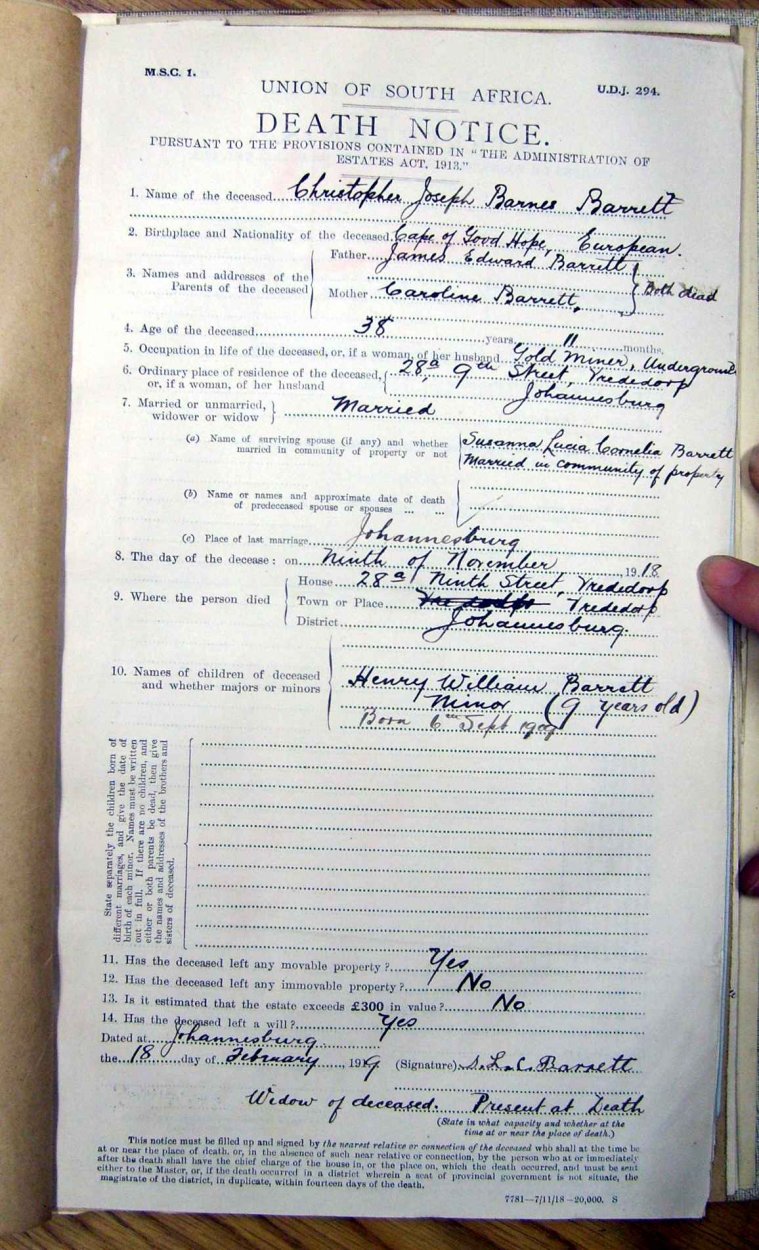 M.S.C. 1.
U.D.J. 294.
UNION OF SOUTH AFRICA.
DEATH NOTICE.
PURSUANT TO THE PROVISIONS CONTAINED IN "THE ADMINISTRATION OF
ESTATES ACT, 1913."
1. Name of the deceased Christopher Joseph Barnes Barrett
2. Birthplace and Nationality of the deceased Cape of Good Hope, European.
3. Names and addresses of the Parents of the deceased
Father James Edward Barrett
Mother Caroline Barrett,
Both dead
4. Age of the deceased 38 years, 11 months,
5. Occupation in life of the deceased, or, if a woman, of her husband Gold Miner, Underground
6. Ordinary place of residence of the deceased, 28a, 9th Street, Vrededorp
or, if a woman, of her husband Johannesburg
7. Married or unmarried, Married
widower or widow
(a) Name of surviving spouse (if any) and whether Susanna Lucia Cornelia Barrett
married in community of property or not Married in community of property
(b) Name or names and approximate date of death
of predeceased spouse or spouses ... ...
(c) Place of last marriage Johannesburg
8. The day of the decease: on Ninth of November 1918
9. Where the person died
House 28a Ninth Street, Vrededorp
Town or Place Vrededorp
District Johannesburg
10. Names of children of deceased
and whether majors or minors
Henry William Barrett
Minor (9 years old)
Born 6th Sept 1909
State separately the children born of
different marriages, and give the date of
birth of each minor. Names must be written
out in full. If there are no children, and
either or both parents be dead, then give
the names and addresses of the brothers and
sisters of deceased.
11. Has the deceased left any movable property? Yes
12. Has the deceased left any immovable property? No
13. Is it estimated that the estate exceeds £300 in value? No
14. Has the deceased left a will? Yes
Dated at Johannesburg
the 18 day of February, 1919 (Signature) S. L. C. Barrett
Widow of deceased. Present at Death
(State in what capacity and whether at the
time at or near the place of death.)
This notice must be filled up and signed by the nearest relative or connection of the deceased who shall at the time be
at or near the place of death, or, in the absence of such near relative or connection, by the person who at or immediately
after the death shall have the chief charge of the house in, or the place on, which the death occurred, and must be sent
either to the Master, or, if the death occurred in a district wherein a seat of provincial government is not situate, the
magistrate of the district, in duplicate, within fourteen days of the death.
7781—7/11/18—20,000. S